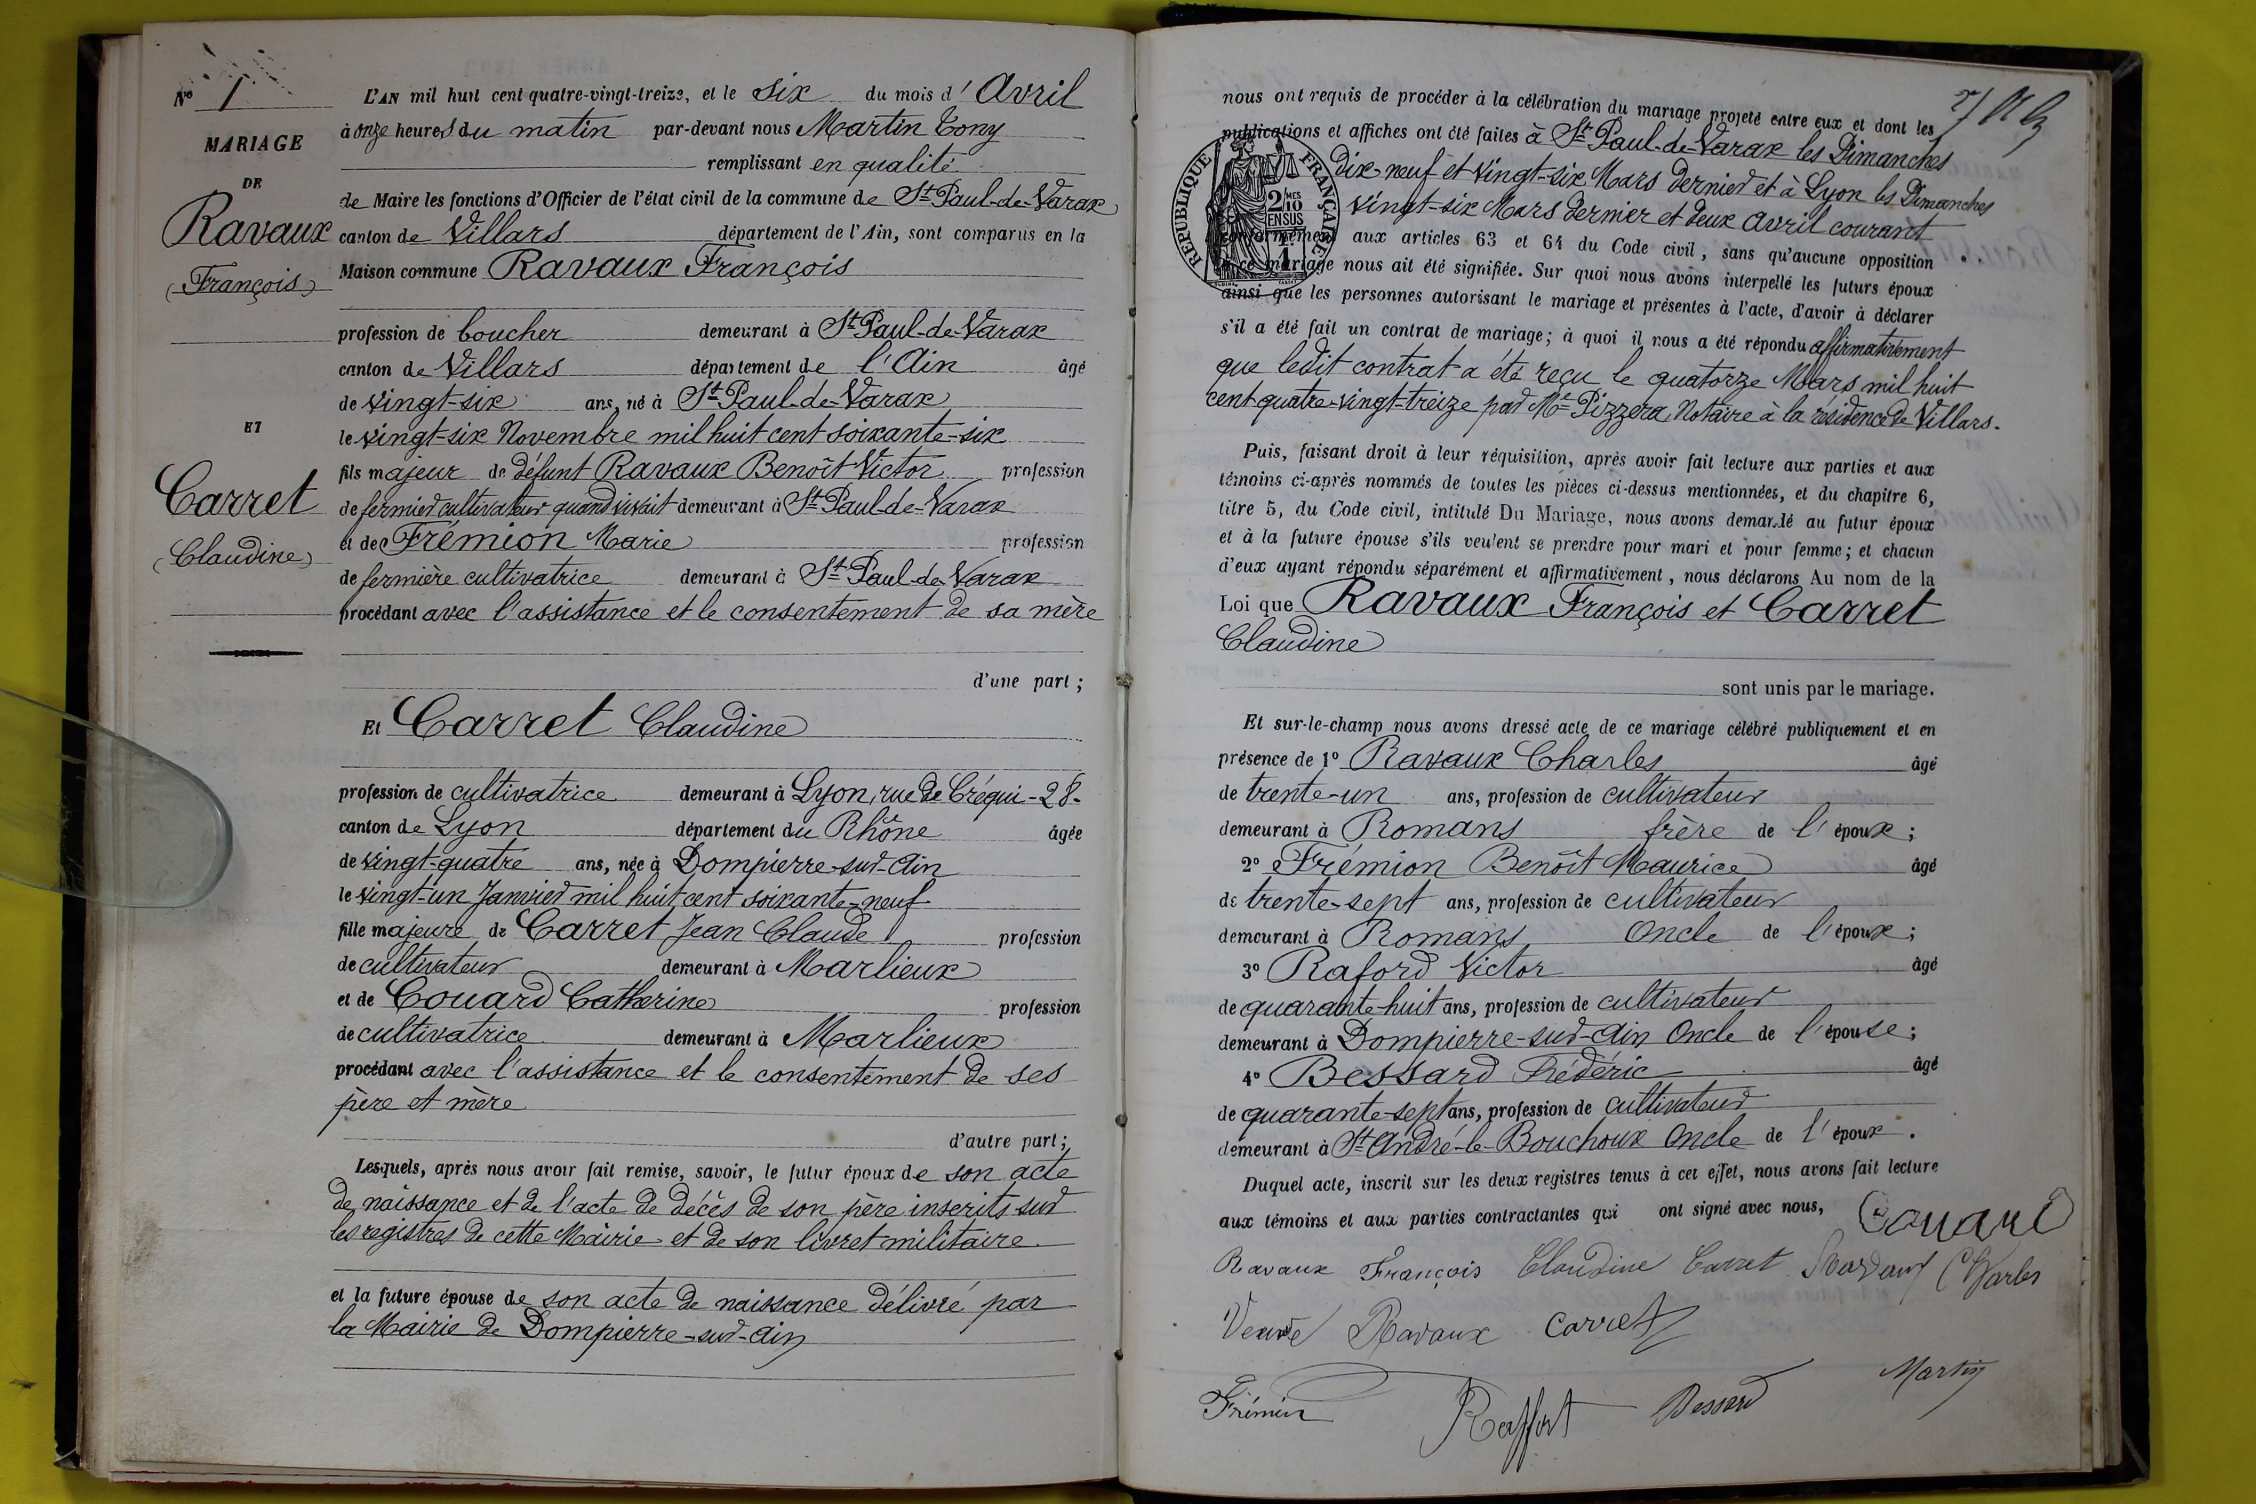 N° 1
MARIAGE
DE
Ravaux
(François)
ET
Carret
(Claudine)
L'AN mil huit cent quatre-vingt-treize, et le six du mois d'Avril
à onze heures du matin par-devant nous Martin Tony
remplissant en qualité
de Maire les fonctions d'Officier de l'état civil de la commune de St Paul-de-Varax
canton de Villars département de l'Ain, sont comparus en la
Maison commune Ravaux François
profession de boucher demeurant à St Paul-de-Varax
canton de Villars département de l'Ain âgé
de vingt-six ans, né à St Paul-de-Varax
le vingt-six Novembre mil huit cent soixante-six
fils majeur de défunt Ravaux Benoît Victor profession
de fermier cultivateur quand vivait demeurant à St Paul-de-Varax
et de Frémion Marie profession
de fermière cultivatrice demeurant à St Paul-de-Varax
procédant avec l'assistance et le consentement de sa mère
d'une part;
Et Carret Claudine
profession de cultivatrice demeurant à Lyon, rue de Créqui - 28 -
canton de Lyon département du Rhône âgée
de vingt-quatre ans, née à Dompierre-sur-Ain
le vingt-un Janvier mil huit cent soixante-neuf
fille majeure de Carret Jean Claude profession
de cultivateur demeurant à Marlieux
et de Couard Catherine profession
de cultivatrice demeurant à Marlieux
procédant avec l'assistance et le consentement de ses
père et mère
d'autre part;
Lesquels, après nous avoir fait remise, savoir, le futur époux de son acte
de naissance et de l'acte de décès de son père inscrits sur
les registres de cette Mairie et de son livret militaire
et la future épouse de son acte de naissance délivré par
la Mairie de Dompierre-sur-Ain
nous ont requis de procéder à la célébration du mariage projeté entre eux et dont les
publications et affiches ont été faites à St Paul-de-Varax les Dimanches
dix-neuf et vingt-six Mars dernier et à Lyon les Dimanches
vingt-six Mars dernier et deux avril courant
conformément aux articles 63 et 64 du Code civil, sans qu'aucune opposition
à ce mariage nous ait été signifiée. Sur quoi nous avons interpellé les futurs époux
ainsi que les personnes autorisant le mariage et présentes à l'acte, d'avoir à déclarer
s'il a été fait un contrat de mariage; à quoi il nous a été répondu affirmativement
que ledit contrat a été reçu le quatorze Mars mil huit
cent quatre-vingt-treize par Me Pizzera, Notaire à la résidence de Villars.
RÉPUBLIQUE FRANÇAISE
2/10 MES
EN SUS
Puis, faisant droit à leur réquisition, après avoir fait lecture aux parties et aux
témoins ci-après nommés de toutes les pièces ci-dessus mentionnées, et du chapitre 6,
titre 5, du Code civil, intitulé Du Mariage, nous avons demandé au futur époux
et à la future épouse s'ils veulent se prendre pour mari et pour femme; et chacun
d'eux ayant répondu séparément et affirmativement, nous déclarons Au nom de la
Loi que Ravaux François et Carret
Claudine
sont unis par le mariage.
Et sur-le-champ nous avons dressé acte de ce mariage célébré publiquement et en
présence de 1° Ravaux Charles âgé
de trente-un ans, profession de cultivateur
demeurant à Romans frère de l'époux;
2° Frémion Benoît Maurice âgé
de trente-sept ans, profession de cultivateur
demeurant à Romans Oncle de l'époux;
3° Raford Victor âgé
de quarante-huit ans, profession de cultivateur
demeurant à Dompierre-sur-Ain Oncle de l'épouse;
4° Bessard Frédéric âgé
de quarante-sept ans, profession de cultivateur
demeurant à St André-le-Bouchoux Oncle de l'époux.
Duquel acte, inscrit sur les deux registres tenus à cet effet, nous avons fait lecture
aux témoins et aux parties contractantes qui ont signé avec nous, Couard
Ravaux François Claudine Carret Ravaux Charles
Veuve Ravaux Carret
Martin
Frémion Raffort Bessard